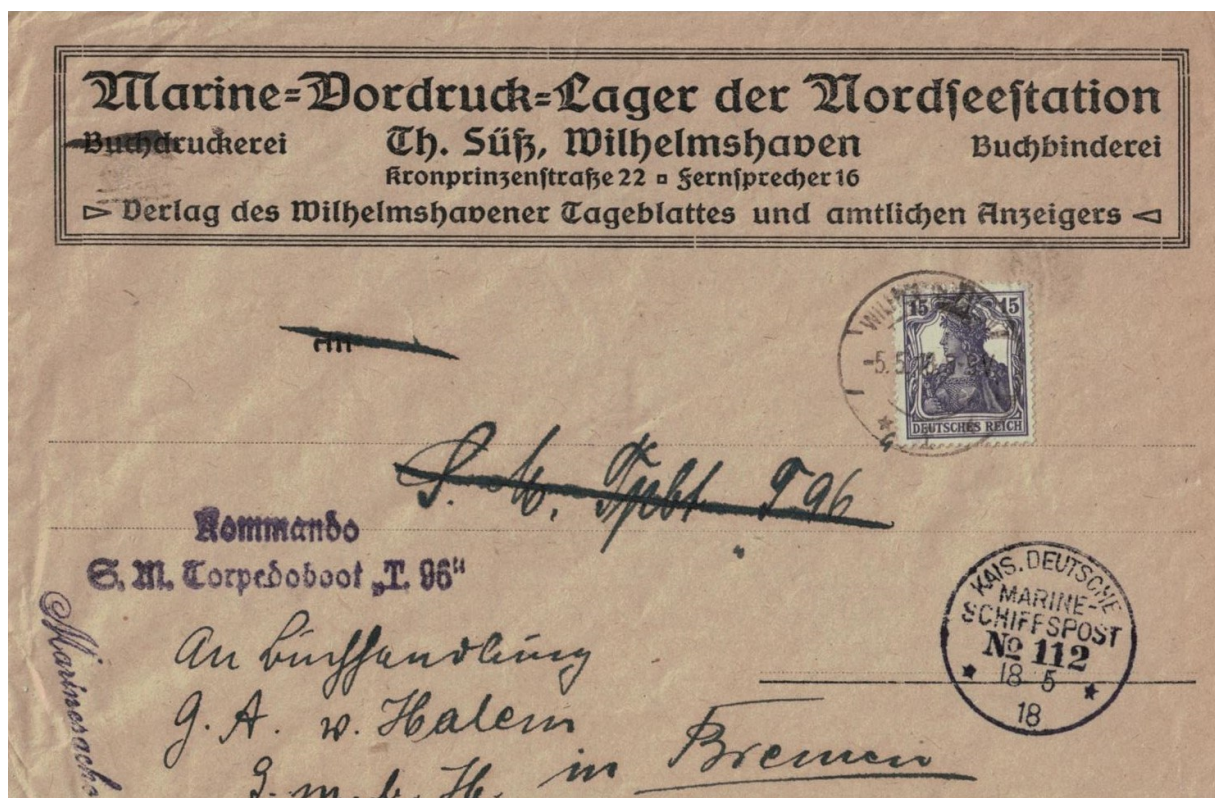 Marine-Vordruck-Lager der Nordseestation
Buchdruckerei Th. Süß, Wilhelmshaven Buchbinderei
Kronprinzenstraße 22 ▫ Fernsprecher 16
▷ Verlag des Wilhelmshavener Tageblattes und amtlichen Anzeigers ◁
An
15 15
-5.5.
DEUTSCHES REICH
S. M. Tpbt T 96
Kommando
S. M. Torpedoboot „T. 96“
KAIS. DEUTSCHE
MARINE-
SCHIFFSPOST
No 112
18 5
18
Marinesache
An Buchhandlung
G. A. v. Halem
G. m. b. H. in Bremen